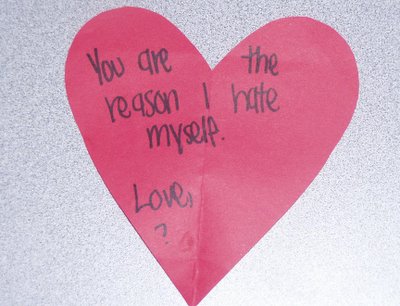 You are the
reason I hate
myself.
Love,
?